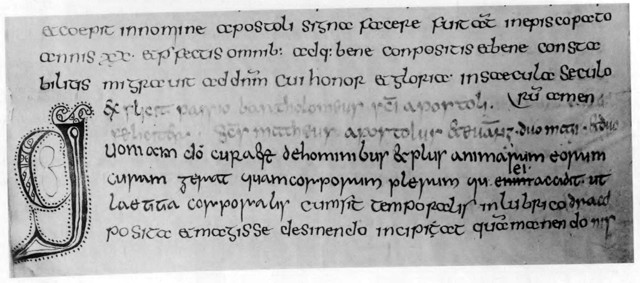 & coepit innomine apostoli signa facere fuit aũt inepiscopato
annis xx. & pfectis omnib: adq: bene conpositis & bene consta
bilitis migrauit ad dñm cui honor & gloria insaecula seculo
explicit passio bartholomeus sc̃i apostoli. rũ amen
apostolus & euang
Quoniam dõ cura est dehominibus & plus animarum eorum
curam gerat quamcorporum
laetitia corporalis cum sit temporalis inlubrico
posita & magisse desinendo incipiat quã manendo